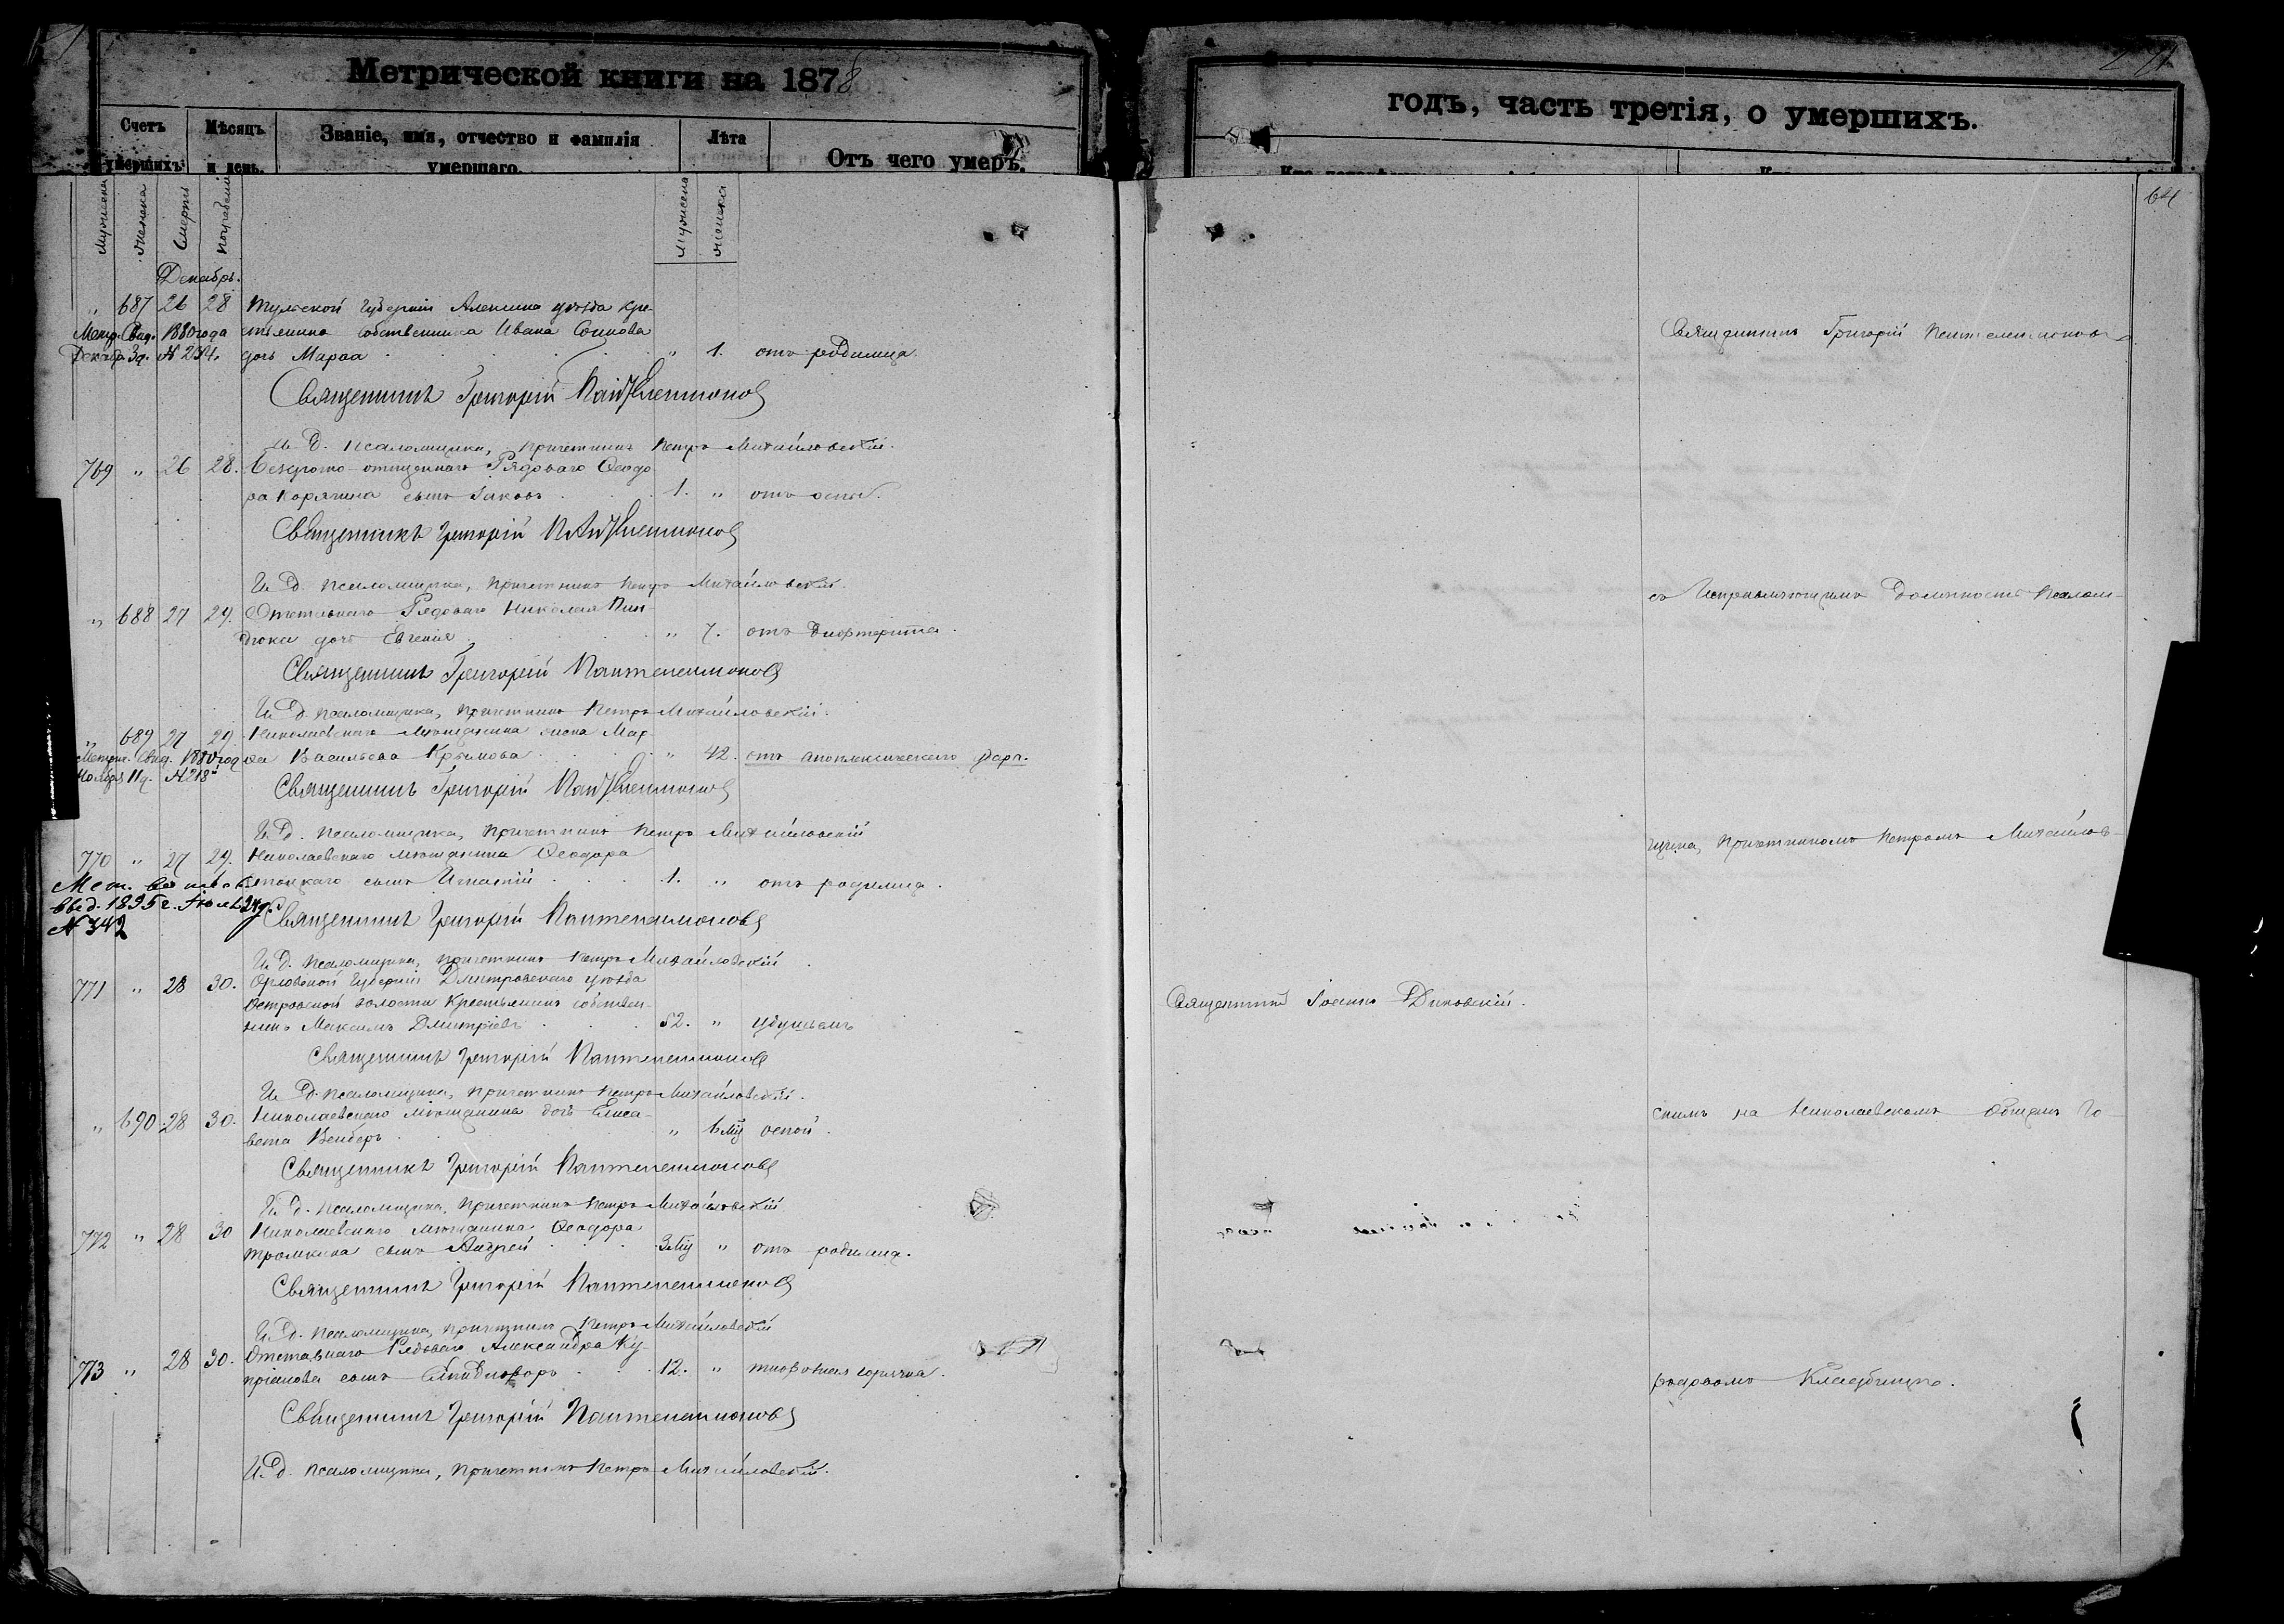 Метрической книги на 1878
годъ, часть третія, о умершихъ.
Счетъ умершихъ
Мѣсяцъ и день.
Званіе, имя, отчество и фамилія умершаго.
Лѣта
Отъ чего умеръ.
64
мужеска
женска
смерти
погребенія
мужеска
женска
Декабрь.
" 687 26 28 Тульской Губерніи Алексина уѣзда кре-
Метр. Свид. 1880 года стьянина собственника Ивана
Декабр. 3д. № 234. дочь Марѳа " 1. отъ родимца.
Священникъ Григорій Пантелеимоновъ
И. Д. Псаломщика, Причетникъ Петръ Михайловскій.
769 " 26 28. Безсрочно-отпущеннаго Рядоваго Ѳеодо
ра Корягина сынъ Іаковъ 1. " отъ оспы.
Священникъ Григорій Пантелеимоновъ
И. Д. Псаломщика, Причетникъ Петръ Михайловскій
" 688 27 29. Отставнаго Рядоваго Николая
дюка дочь Евгенія " 7. отъ дифтерита.
Священникъ Григорій Пантелеимоновъ
И. Д. Псаломщика, Причетникъ Петръ Михайловскій.
" 689 27 29. Николаевскаго мѣщанина жена Мар
Метр. Свид. 1880 год ѳа Васильева Крымова " 42. отъ апоплексическаго удар.
Ноября 11д. № 218
Священникъ Григорій Пантелеимоновъ
И. Д. Псаломщика, Причетникъ Петръ Михайловскій
770 " 27 29. Николаевскаго мѣщанина Ѳеодора
сынъ Игнатій 1. " отъ родимца.
1895 г. № 342
Священникъ Григорій Пантелеимоновъ
И. Д. Псаломщика, Причетникъ Петръ Михайловскій
771 " 28 30. Орловской Губерніи Дмитровскаго уѣзда
волости Крестьянинъ собствен-
никъ Максимъ Дмитріевъ 52. " удушьемъ
Священникъ Григорій Пантелеимоновъ
И. Д. Псаломщика, Причетникъ Петръ Михайловскій.
" 690 28 30. Николаевскаго мѣщанина дочь Елиса-
вета " оспой.
Священникъ Григорій Пантелеимоновъ
И. Д. Псаломщика, Причетникъ Петръ Михайловскій
772 " 28 30 Николаевскаго мѣщанина Ѳеодора
Тромкина сынъ Андрей " отъ родимца.
Священникъ Григорій Пантелеимоновъ
И. Д. Псаломщика, Причетникъ Петръ Михайловскій
773 " 28 30. Отставнаго Рядоваго Александра Ку-
пріянова сынъ 12. " тифозная горячка.
Священникъ Григорій Пантелеимоновъ
И. Д. Псаломщика, Причетникъ Петръ Михайловскій.
Священникъ Іоаннъ Диковскій.
Священникъ Григорій Пантелеимоновъ
съ Исправляющимъ Должность Псалом-
щика, Причетникомъ Петромъ Михайлов-
скимъ на Николаевскомъ Общемъ Го
родовомъ Кладбищѣ.